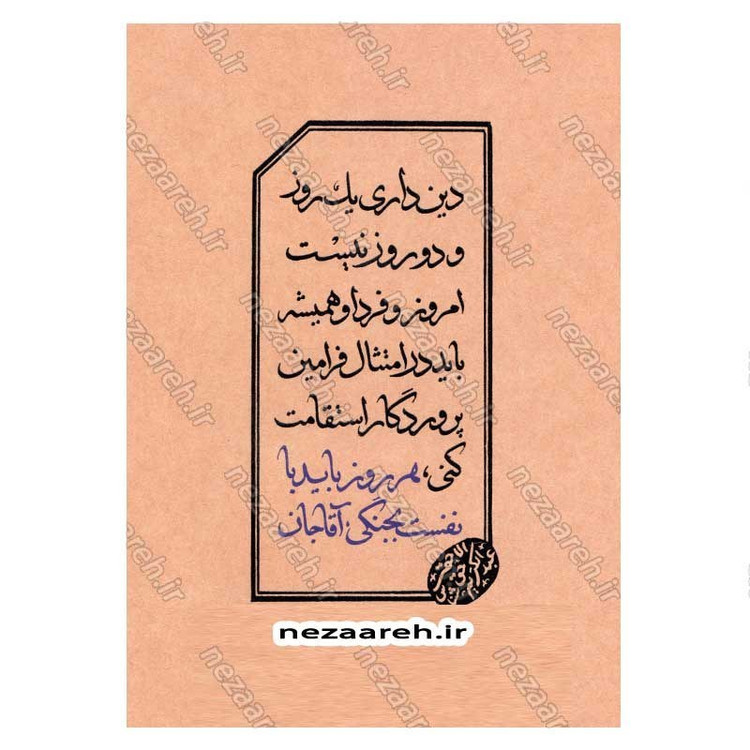 دین داری یک روز
و دو روز نیست
امروز و فردا و همیشه
باید در امتثال فرامین
پروردگار استقامت
کنی، هر روز باید با
نفست بجنگی؛ آقاجان
nezaareh.ir